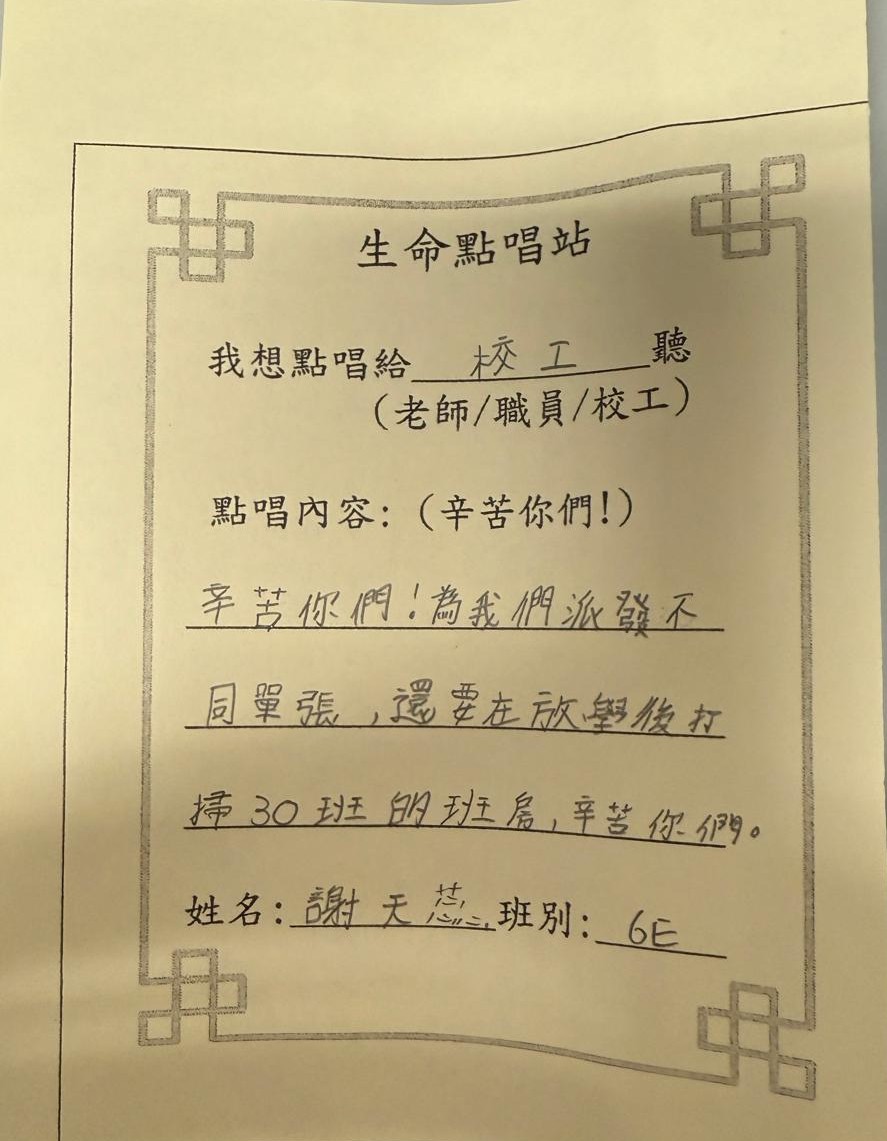 生命點唱站
我想點唱給校工聽
（老師/職員/校工）
點唱內容：（辛苦你們！）
辛苦你們！為我們派發不
同單張，還要在放學後打
掃30班的班房，辛苦你們。
姓名：謝天蕊 班別：6E